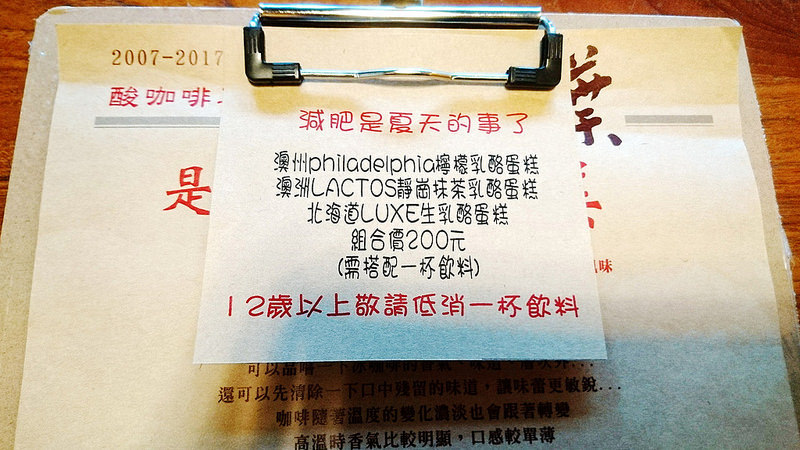 2007-2017
酸咖啡
葉
減肥是夏天的事了
是
澳州philadelphia檸檬乳酪蛋糕
澳洲LACTOS靜崗抹茶乳酪蛋糕
北海道LUXE生乳酪蛋糕
組合價200元
(需搭配一杯飲料)
味
12歲以上敬請低消一杯飲料
可以品嚐一下冰咖啡的香氣
還可以先清除一下口中殘留的味道，讓味蕾更敏銳...
咖啡隨著溫度的變化濃淡也會跟著轉變
高溫時香氣比較明顯，口感較單薄